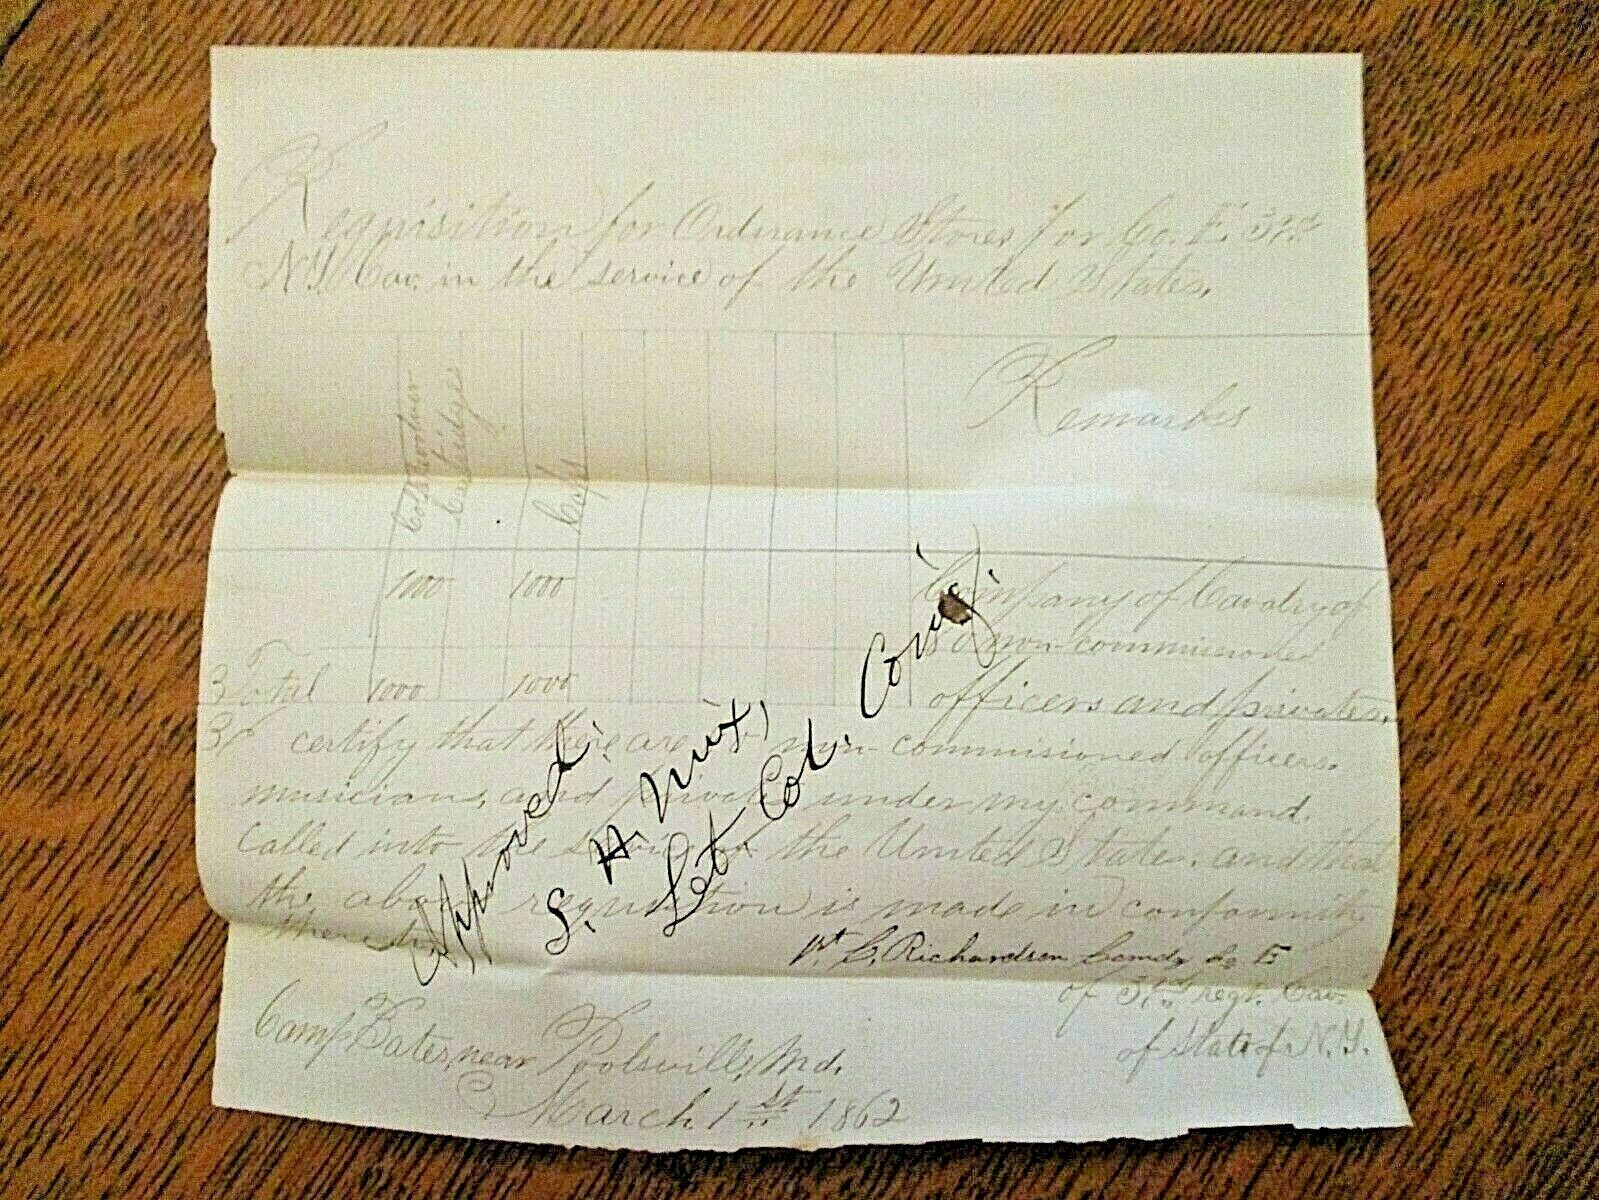 Requisition for Ordnance Stores for Co. E. 3rd.
N.Y. Cav. in the service of the United States.
Cartridges
Caps
Remarks
1000 1000 Company of Cavalry of
non-commissioned
Total 1000 1000 officers and privates.
certify that there are non-commissioned officers
musicians, and privates under my command.
Called into the service of the United States. and that
the above requisition is made in conformity
there
Approved.
S. H. Mix,
Let. Col. Com'g
C. Richardson Comdg Co E
of 3rd regt. Cav.
of State of N.Y.
Camp Bates, near Poolsville, Md.
March 1st 1862